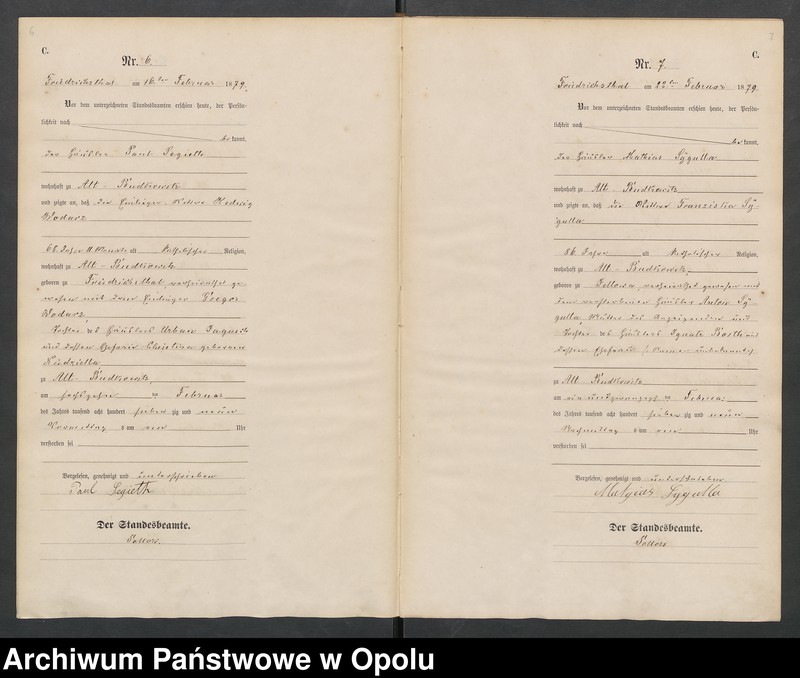 C.
Nr. 6.
Friedrichsthal am 16ten Februar 1879.
Vor dem unterzeichneten Standesbeamten erschien heute, der Persön-
lichkeit nach
bekannt,
der Häusler Paul
wohnhaft zu Alt-Budkowitz
und zeigte an, daß die Einlieger-Wittwe Hedwig
Kodurz
68 Jahr 11 Monate alt Katholischer Religion,
wohnhaft zu Alt-Budkowitz
geboren zu Friedrichsthal, verheirathet ge-
wesen mit dem Einlieger Gregor
Kodurz
Tochter des Häuslers Urban
und dessen Ehefrau geborenen
zu Alt-Budkowitz,
am sechszehnten Februar
des Jahres tausend acht hundert sieben zig und neun
Vormittag s um Uhr
verstorben sei
Vorgelesen, genehmigt und unterschrieben
Paul
Der Standesbeamte.
C.
Nr. 7.
Friedrichsthal am 22ten Februar 1879.
Vor dem unterzeichneten Standesbeamten erschien heute, der Persön-
lichkeit nach
bekannt,
der Häusler Mathias Sygulla
wohnhaft zu Alt-Budkowitz
und zeigte an, daß die Wittwe Franziska Sy-
gulla
86 Jahr alt Katholischer Religion,
wohnhaft zu Alt-Budkowitz,
geboren zu verheirathet gewesen mit
dem verstorbenen Häusler Anton Sy-
gulla Mutter des Anzeigenden und
Tochter des Häuslers
dessen Ehefrau, Namen unbekannt
zu Alt Budkowitz
am ein und zwanzigsten Februar
des Jahres tausend acht hundert sieben zig und neun
Nachmittag s um Uhr
verstorben sei
Vorgelesen, genehmigt und unterschrieben
Sygulla
Der Standesbeamte.
Archiwum Państwowe w Opolu